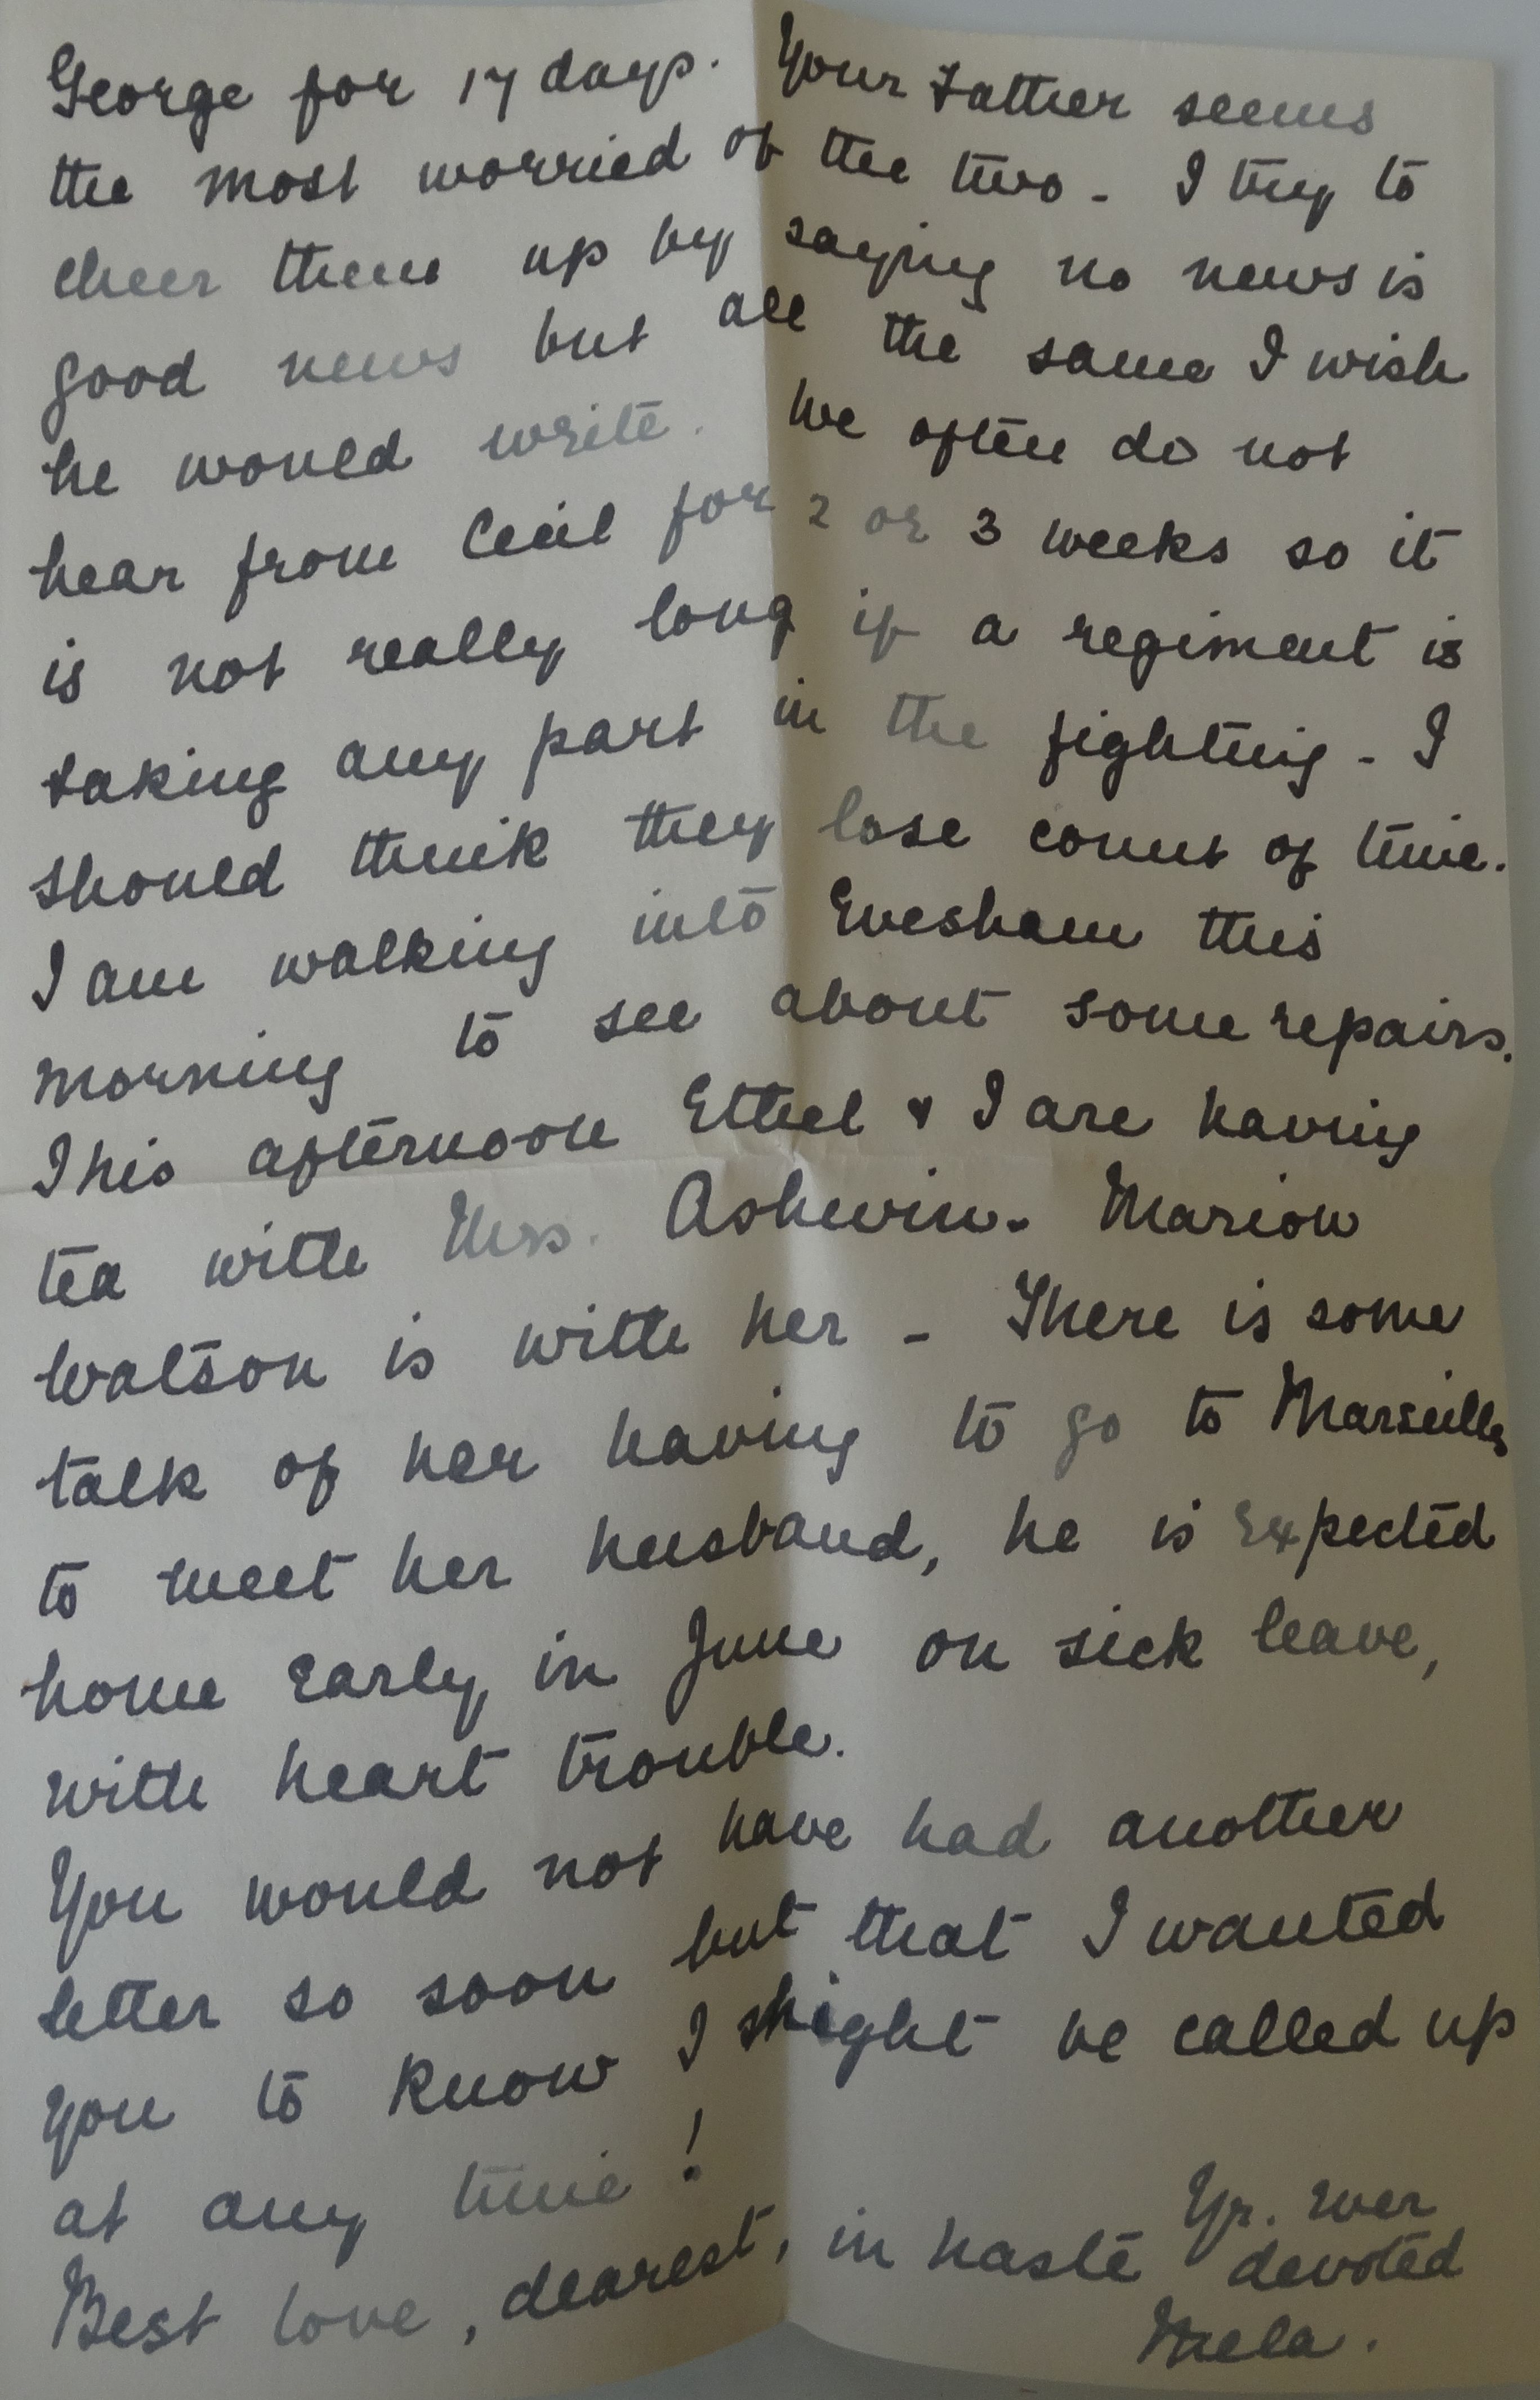 George for 17 days. Your Father seems
the most worried of the two - I try to
cheer them up by saying no news is
good news but all the same I wish
he would write. We often do not
hear from Cecil for 2 or 3 weeks so it
is not really long if a regiment is
taking any part in the fighting - I
should think they lose count of time.
I am walking into Evesham this
morning to see about some repairs.
This afternoon Ethel & I are having
tea with Mrs. Ashwin - Marion
Watson is with her - There is some
talk of her having to go to Marseilles
to meet her husband, he is expected
home early in June on sick leave,
with heart trouble.
You would not have had another
letter so soon but that I wanted
you to know I might be called up
at any time!
Best love, dearest, in haste Yr. ever
devoted
Mela.